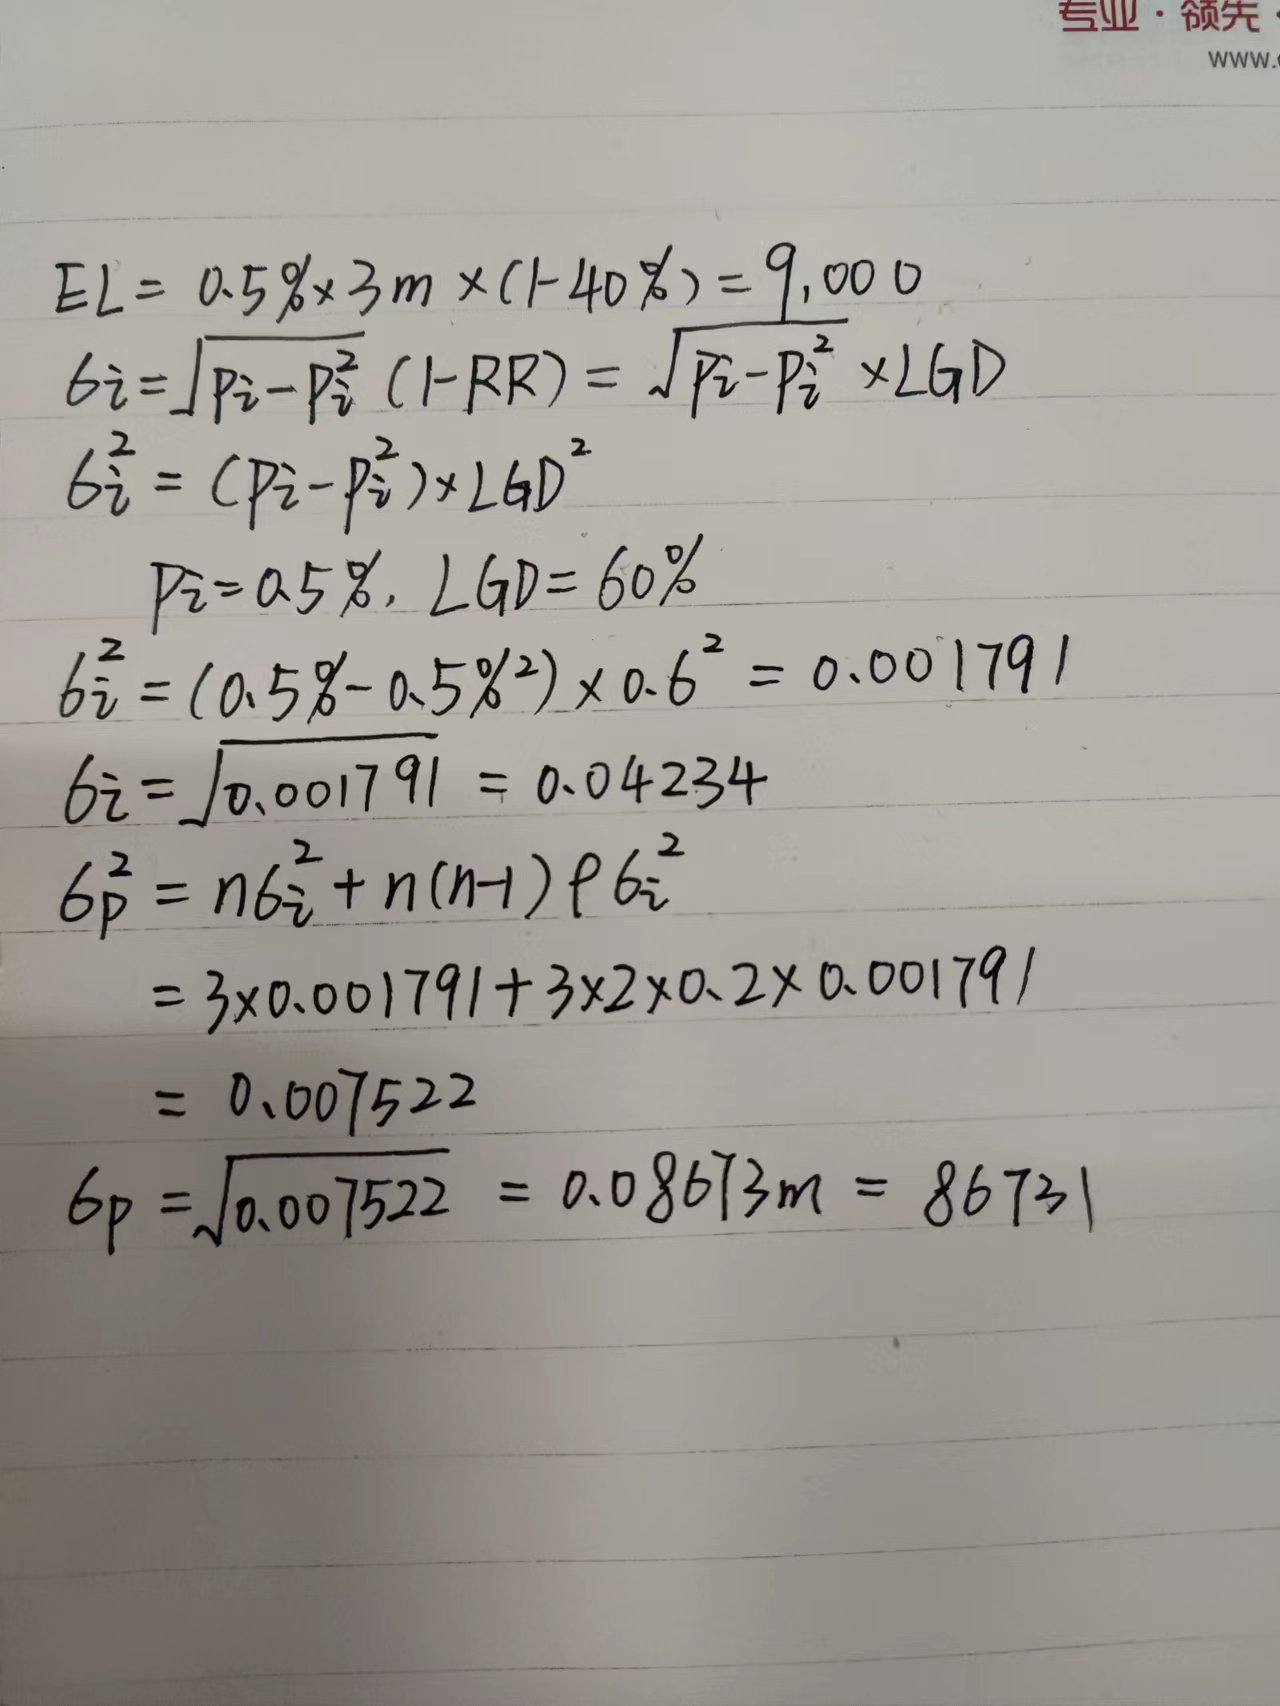 专业·领先·
www.
EL = 0.5% × 3m × (1-40%) = 9,000
σi = √(pi - pi²) (1-RR) = √(pi - pi²) × LGD
σi² = (pi - pi²) × LGD²
pi = 0.5%, LGD = 60%
σi² = (0.5% - 0.5%²) × 0.6² = 0.001791
σi = √0.001791 = 0.04234
σp² = nσi² + n(n-1)ρσi²
= 3×0.001791 + 3×2×0.2×0.001791
= 0.007522
σp = √0.007522 = 0.08673m = 86731